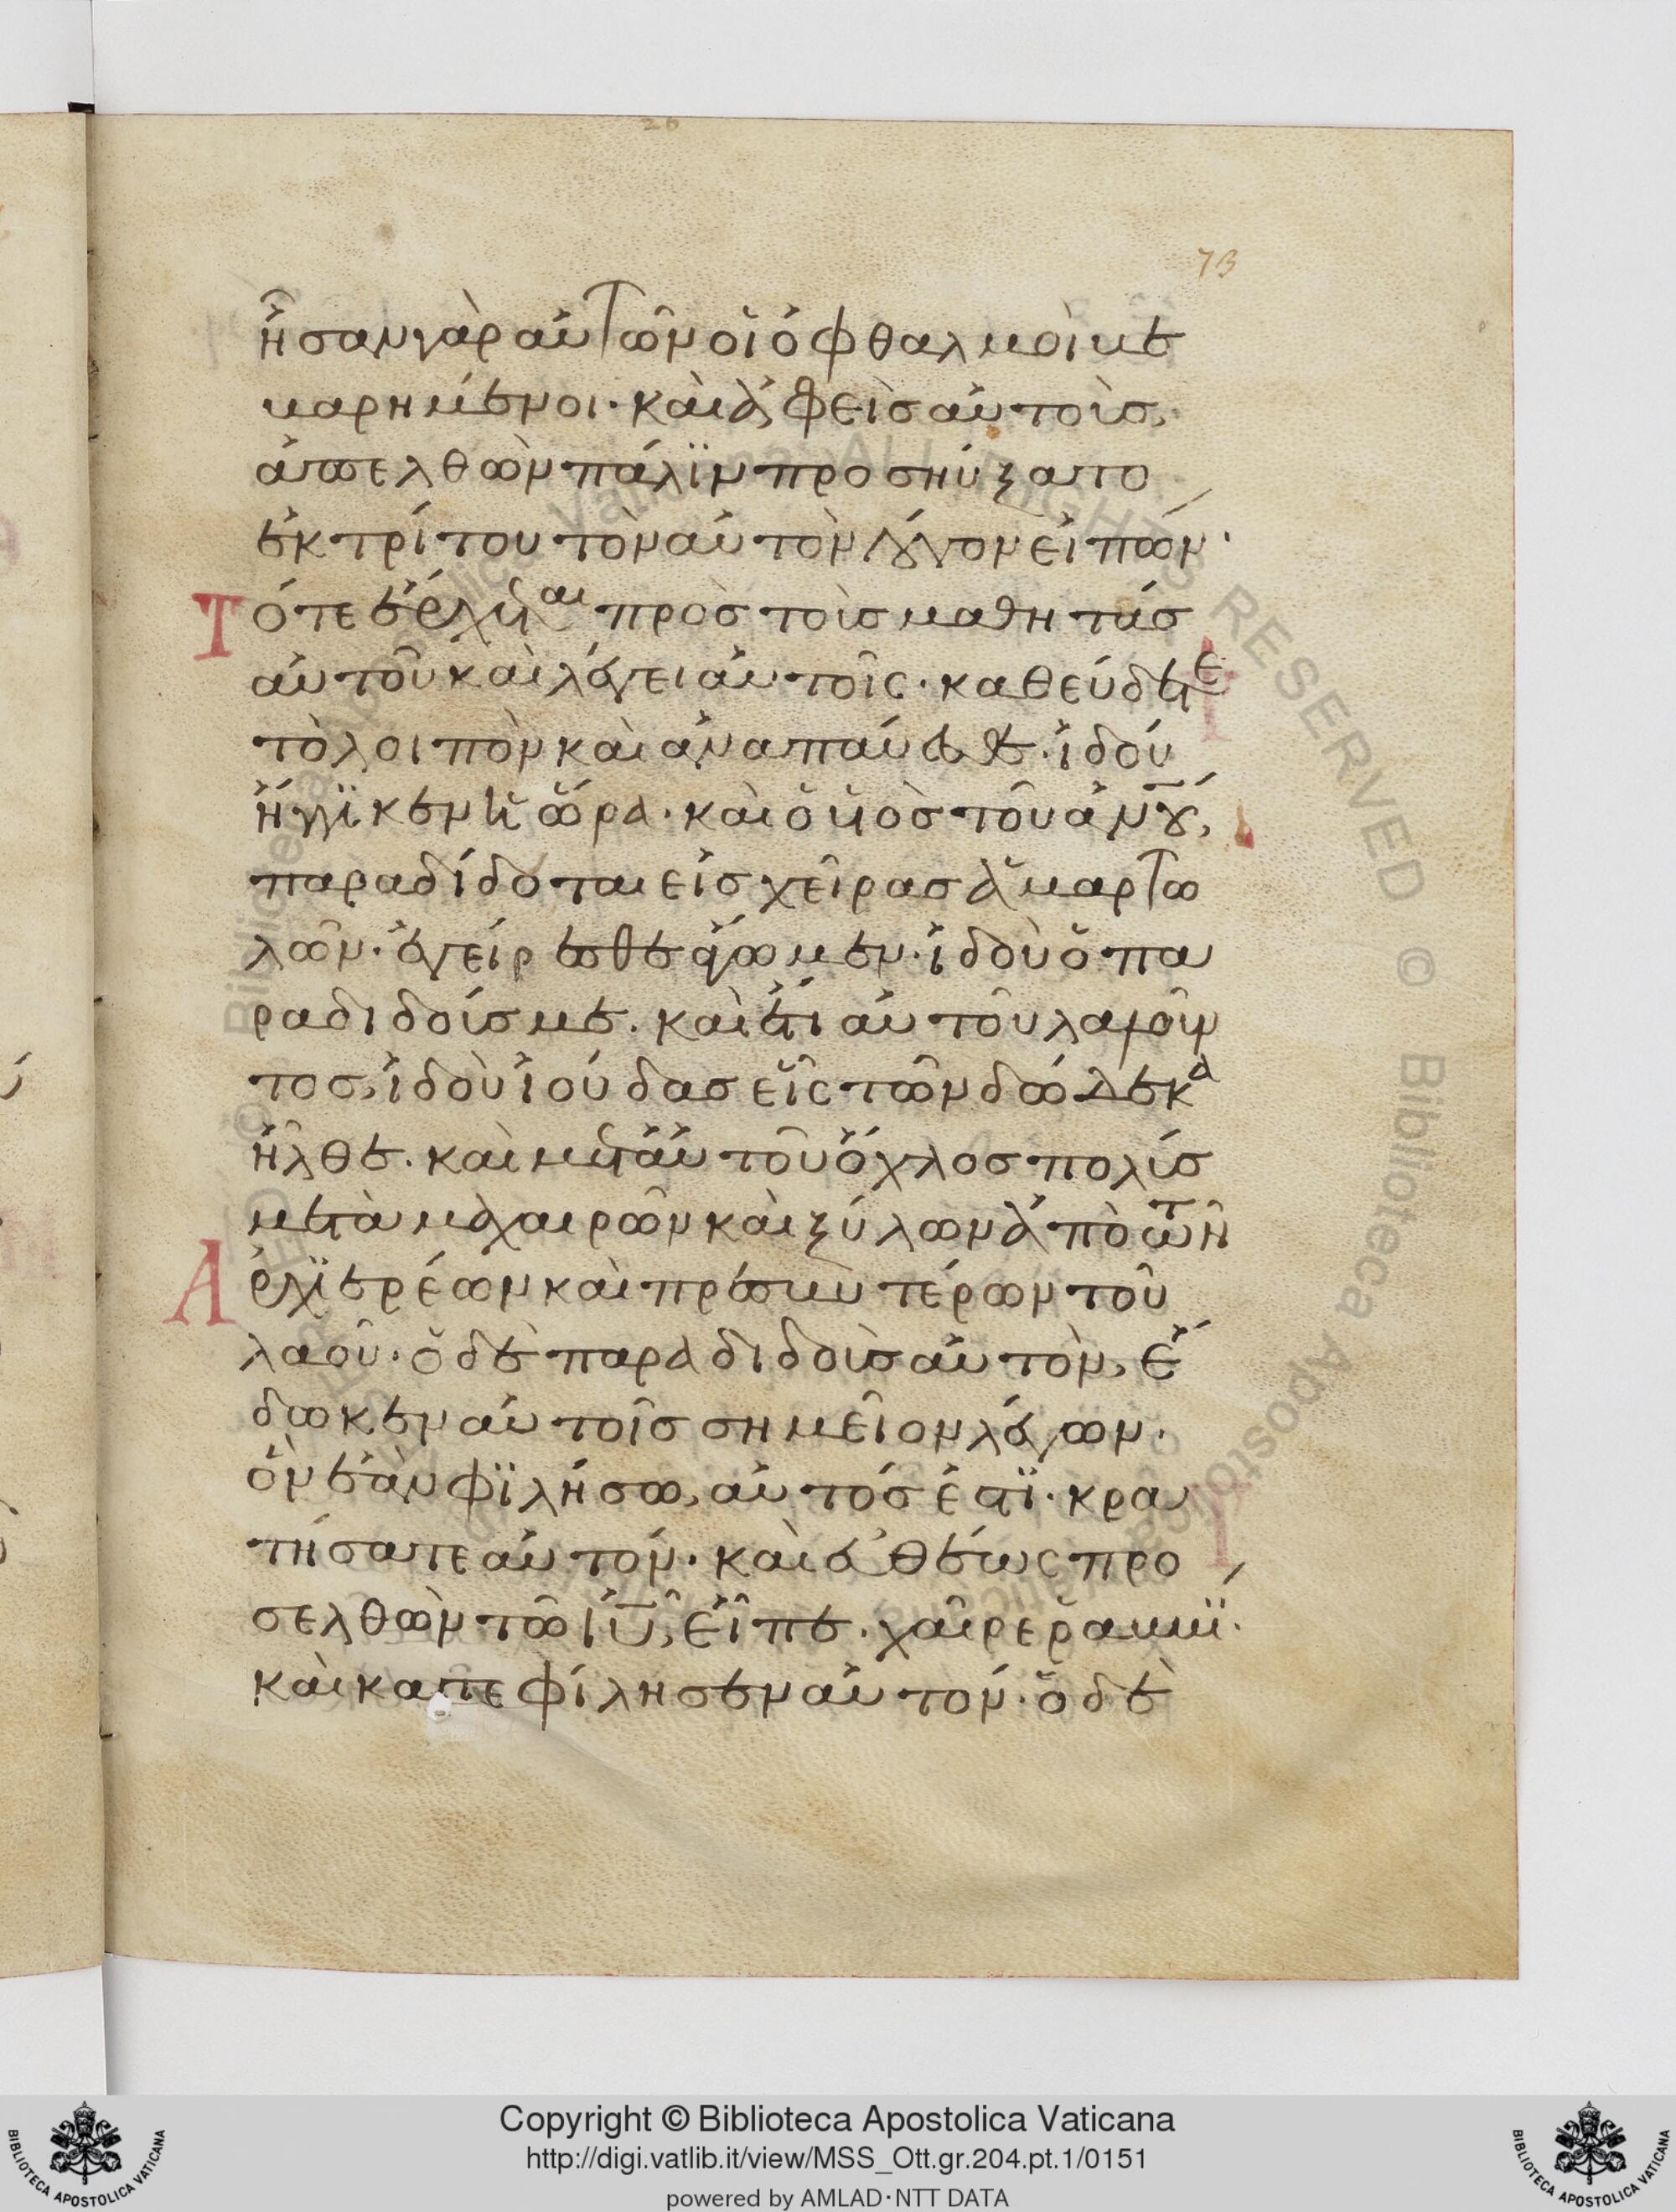 73
ἦσαν γὰρ αὐτῶν οἱ ὀφθαλμοὶ βε
βαρημένοι· καὶ ἀφεὶς αὐτοὺς,
ἀπελθὼν πάλϊν προσηύξατο
ἐκ τρίτου τὸν αὐτὸν λόγον εἰπών·
Τότε ἔρχεται πρὸς τοὺς μαθητὰς
αὐτοῦ καὶ λέγει αὐτοῖς· καθεύδετε
τὸ λοιπὸν καὶ ἀναπαύεσθε· ἰδοὺ
ἤγγϊκεν ἡ ὥρα· καὶ ὁ υἱὸς τοῦ ἀνου,
παραδίδοται εἰς χεῖρας ἁμαρτω
λῶν· ἐγείρεσθε ἄγωμεν· ἰδοὺ ὁ πα
ραδιδούς με· καὶ ἔτι αὐτοῦ λαλοῦν
τος, ἰδοὺ ἰούδας εἷς τῶν δώδεκα
ἦλθε· καὶ μετ' αὐτοῦ ὄχλος πολὺς
μετὰ μαχαιρῶν καὶ ξύλων ἀπὸ τῶν
Ἀρχϊερέων καὶ πρεσβυτέρων τοῦ
λαοῦ· ὁ δὲ παραδιδοὺς αὐτὸν, ἔ
δωκεν αὐτοῖς σημεῖον λέγων·
ὃν ἐὰν φϊλήσω, αὐτός ἐστϊ· κρα
τήσατε αὐτόν· καὶ εὐθέως προ
σελθὼν τῶ ιυ, εἶπε· χαῖρε ῥαββΐ·
καὶ κατεφίλησεν αὐτόν· ὁ δὲ
Copyright © Biblioteca Apostolica Vaticana
http://digi.vatlib.it/view/MSS_Ott.gr.204.pt.1/0151
powered by AMLAD·NTT DATA
BIBLIOTECA APOSTOLICA VATICANA
BIBLIOTECA APOSTOLICA VATICANA